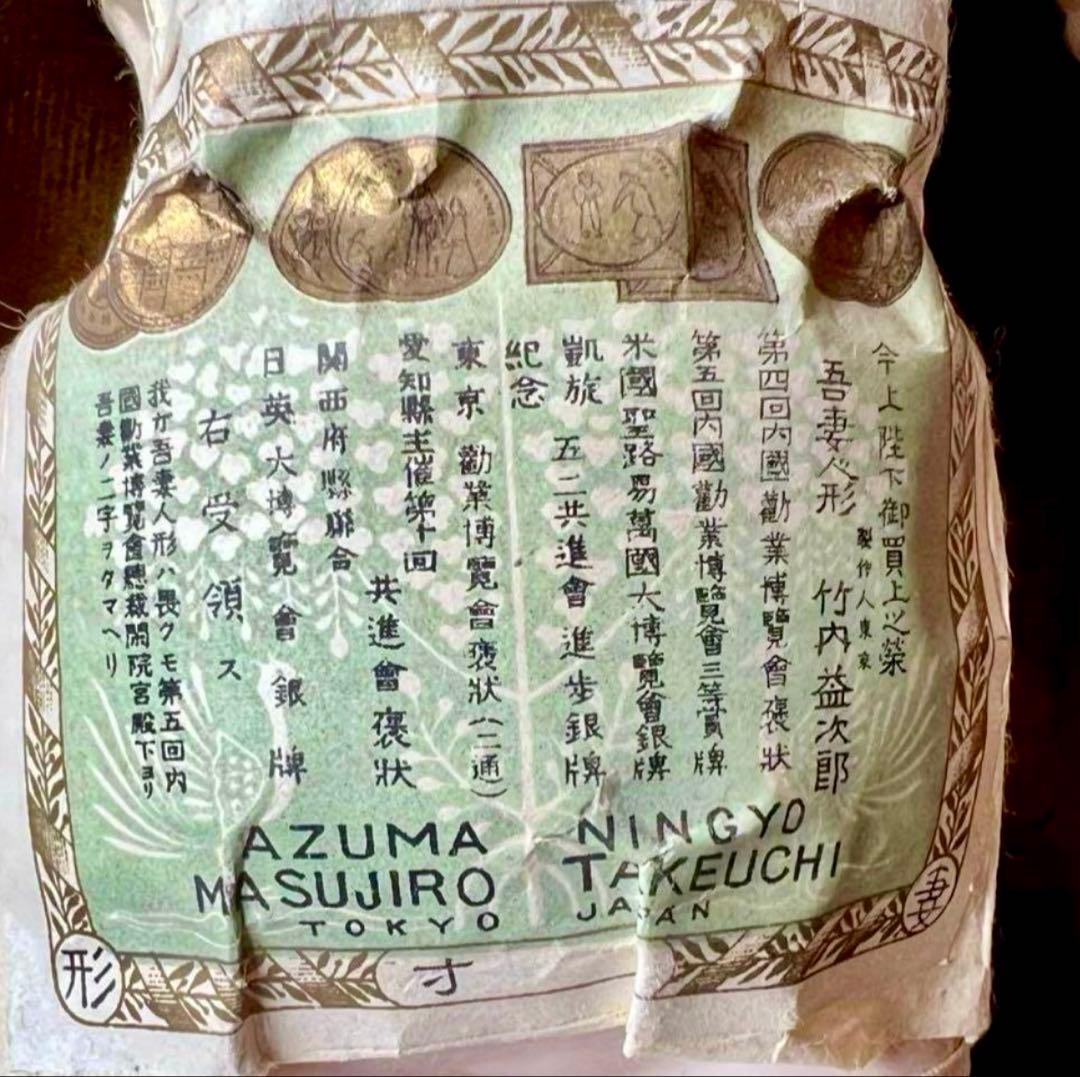 今上陛下御買上之榮
吾妻人形 製作人東京 竹内益次郎
第四回内國勸業博覽會褒狀
第五回内國勸業博覽會三等賞牌
米國聖路易萬國大博覽會銀牌
凱旋紀念 五二共進會進歩銀牌
東京勸業博覽會褒狀(二通)
愛知縣主催第十回
關西府縣聯合共進會褒狀
日英大博覽會銀牌
右受領ス
我カ吾妻人形ハ畏クモ第五回内
國勸業博覽會總裁閑院宮殿下ヨリ
吾妻ノ二字ヲタマヘリ
AZUMA NINGYO
MASUJIRO TAKEUCHI
TOKYO JAPAN
吾
才
形